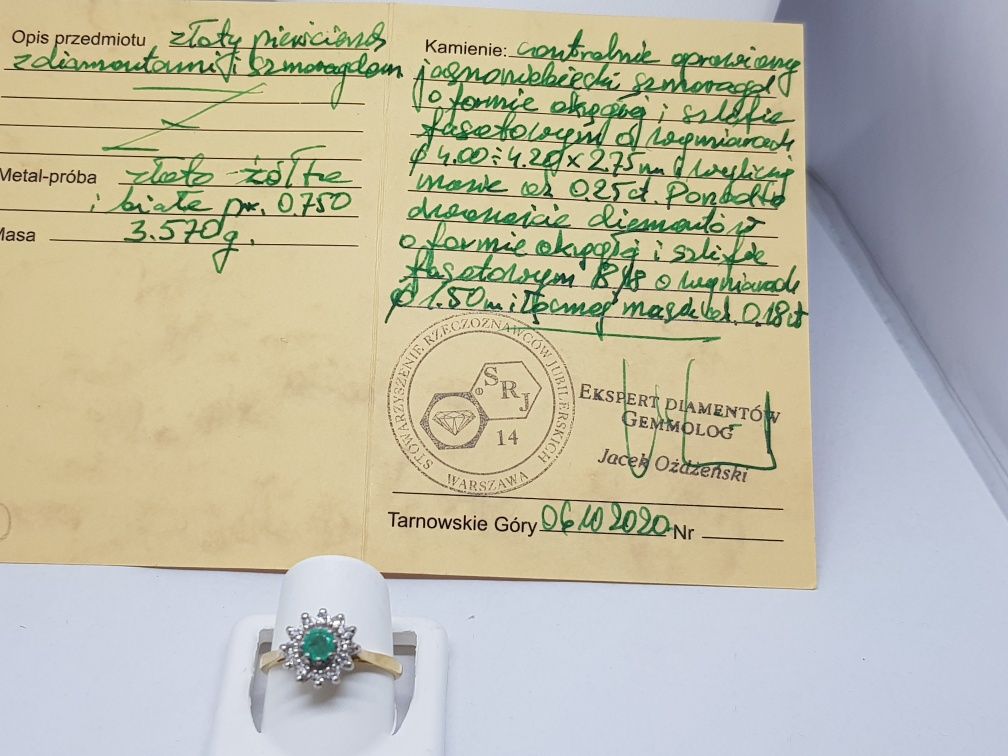 Opis przedmiotu złoty pierścionek
z diamentami i szmaragdem
Metal-próba złoto żółte
i białe pr. 0.750
Masa 3.570g.
Kamienie: centralnie oprawiony
jasnoniebieski szmaragd
o formie okrągłej i szlifie
fasetowym o wymiarach
ϕ 4.00÷4.20 x 2.75 m i
masie ok. 0.25ct. Ponadto
diamentów
o formie okrągłej i szlifie
fasetowym 8/8 o wymiarach
ϕ 1.50 m i łącznej masie ok. 0.18ct
STOWARZYSZENIE RZECZOZNAWCÓW JUBILERSKICH
WARSZAWA
SRJ
14
EKSPERT DIAMENTÓW
GEMMOLOG
Jacek Ożdżeński
Tarnowskie Góry 06.10.2020 Nr